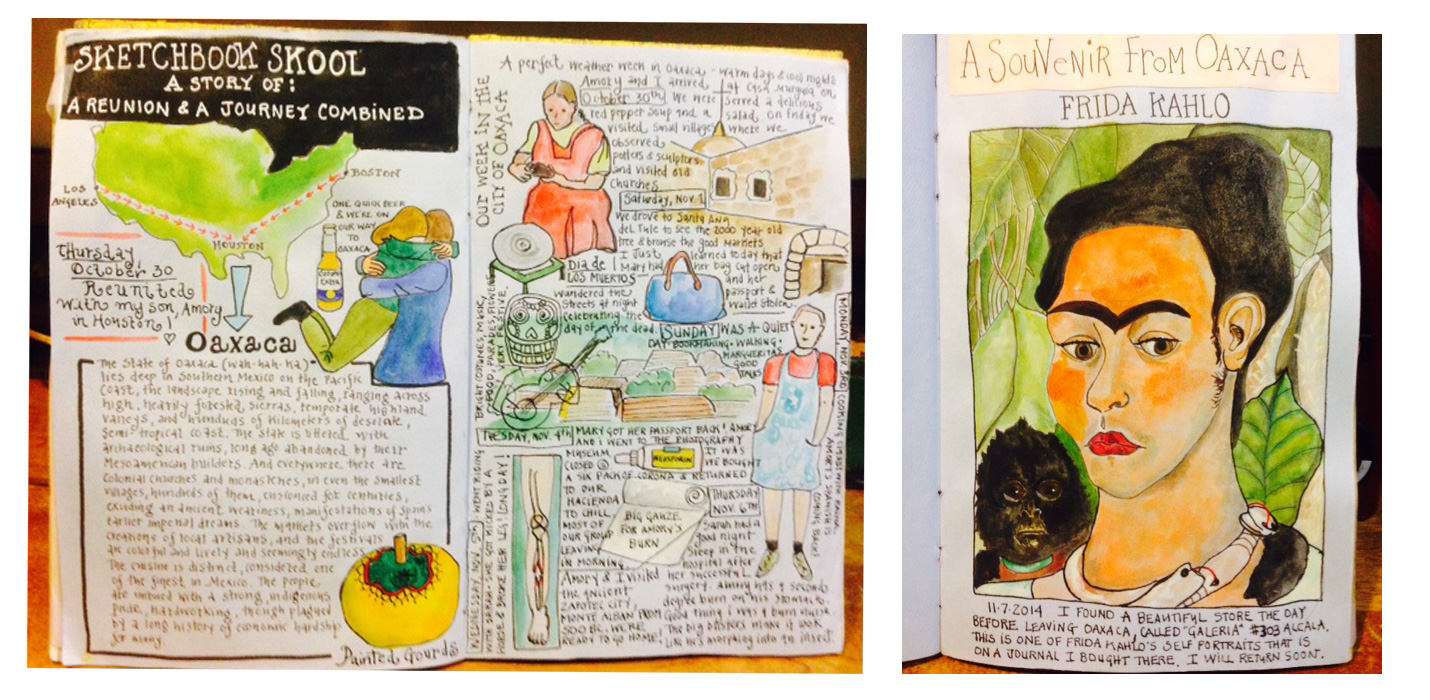 SKETCHBOOK SKOOL
A STORY OF:
A REUNION & A JOURNEY COMBINED
LOS
ANGELES
BOSTON
HOUSTON
ONE QUICK BEER
& WE'RE ON
OUR WAY
TO
OAXACA
Corona
Extra
Thursday,
October 30
Reunited
with my son, Amory
in Houston!
Oaxaca
The State of Oaxaca (wah-hah-ka)
lies deep in Southern Mexico on the Pacific
Coast, the landscape rising and falling, ranging across
high, heavily forested, sierras, temporate highland
valleys, and hundreds of kilometers of desolate,
semi-tropical coast. The state is littered with
archaeological ruins, long ago abandoned by their
Mesoamerican builders. And everywhere there are
colonial churches and monasteries, in even the smallest
villages, hundreds of them, ensconced for centuries,
exuding an ancient weariness, manifestations of Spain's
earlier imperial dreams. The markets overflow with the
creations of local artisans, and the festivals
are colorful and lively and seemingly endless.
The cuisine is distinct, considered one
of the finest in Mexico. The people
are imbued with a strong, indigenous
pride, hardworking, though plagued
by a long history of economic hardship
for many.
Painted Gourds
OUR WEEK IN THE
CITY OF OAXACA
A perfect weather week in Oaxaca - warm days & cool nights
Amory and I arrived at Casa Murguia on
October 30th. We were served a delicious
red pepper soup and a salad. On Friday we
visited small villages where we
observed
potters & sculptors,
and visited old
churches.
Saturday, Nov. 1
We drove to Santa Ana
del Tule to see the 2000 year old
tree & browse the good markets
I just learned today that
Mary had her bag cut open
and her
passport &
wallet stolen.
Dia de
LOS MUERTOS
Wandered the
streets at night
celebrating the
day of the dead.
BRIGHT COSTUMES, MUSIC,
FOOD, PARADES, FLOWERS
VERY FESTIVE.
SUNDAY WAS A QUIET
DAY-BOOKMAKING-WALKING-
MARGUERITAS
GOOD
TALKS
MONDAY, NOV. 3RD COOKING CLASS
AMORY'S SPANISH IS
COMING BACK!
TUESDAY, NOV. 4th MARY GOT HER PASSPORT BACK! AMORY
AND I WENT TO THE PHOTOGRAPHY
MUSEUM IT WAS
CLOSED WE BOUGHT
A SIX PACK OF CORONA & RETURNED
TO OUR
HACIENDA
TO CHILL.
MOST OF
OUR GROUP
LEAVING
IN MORNING.
NEOSPORIN
BIG GAUZE
FOR AMORY'S
BURN
WEDNESDAY, NOV. 5TH WENT RIDING
WITH SARAH - SHE GOT KICKED BY A
HORSE & BROKE HER LEG! LONG DAY!
THURSDAY
NOV. 6TH
Sarah had a
good night
sleep in the
hospital after
her successful
surgery. Amory has 2 seconds
degree burn on his stomach.
Good thing I was a burn nurse.
The big blisters make it look
like he's morphing into an insect.
Amory & I visited
the ancient
ZAPOTEC CITY,
MONTE ALBAN FROM
500 BC. WE'RE
READY TO GO HOME!
A SOUVENIR FROM OAXACA
FRIDA KAHLO
11.7.2014 I FOUND A BEAUTIFUL STORE THE DAY
BEFORE LEAVING OAXACA, CALLED "GALERIA" #303 ALCALA.
THIS IS ONE OF FRIDA KAHLO'S SELF PORTRAITS THAT IS
ON A JOURNAL I BOUGHT THERE. I WILL RETURN SOON.